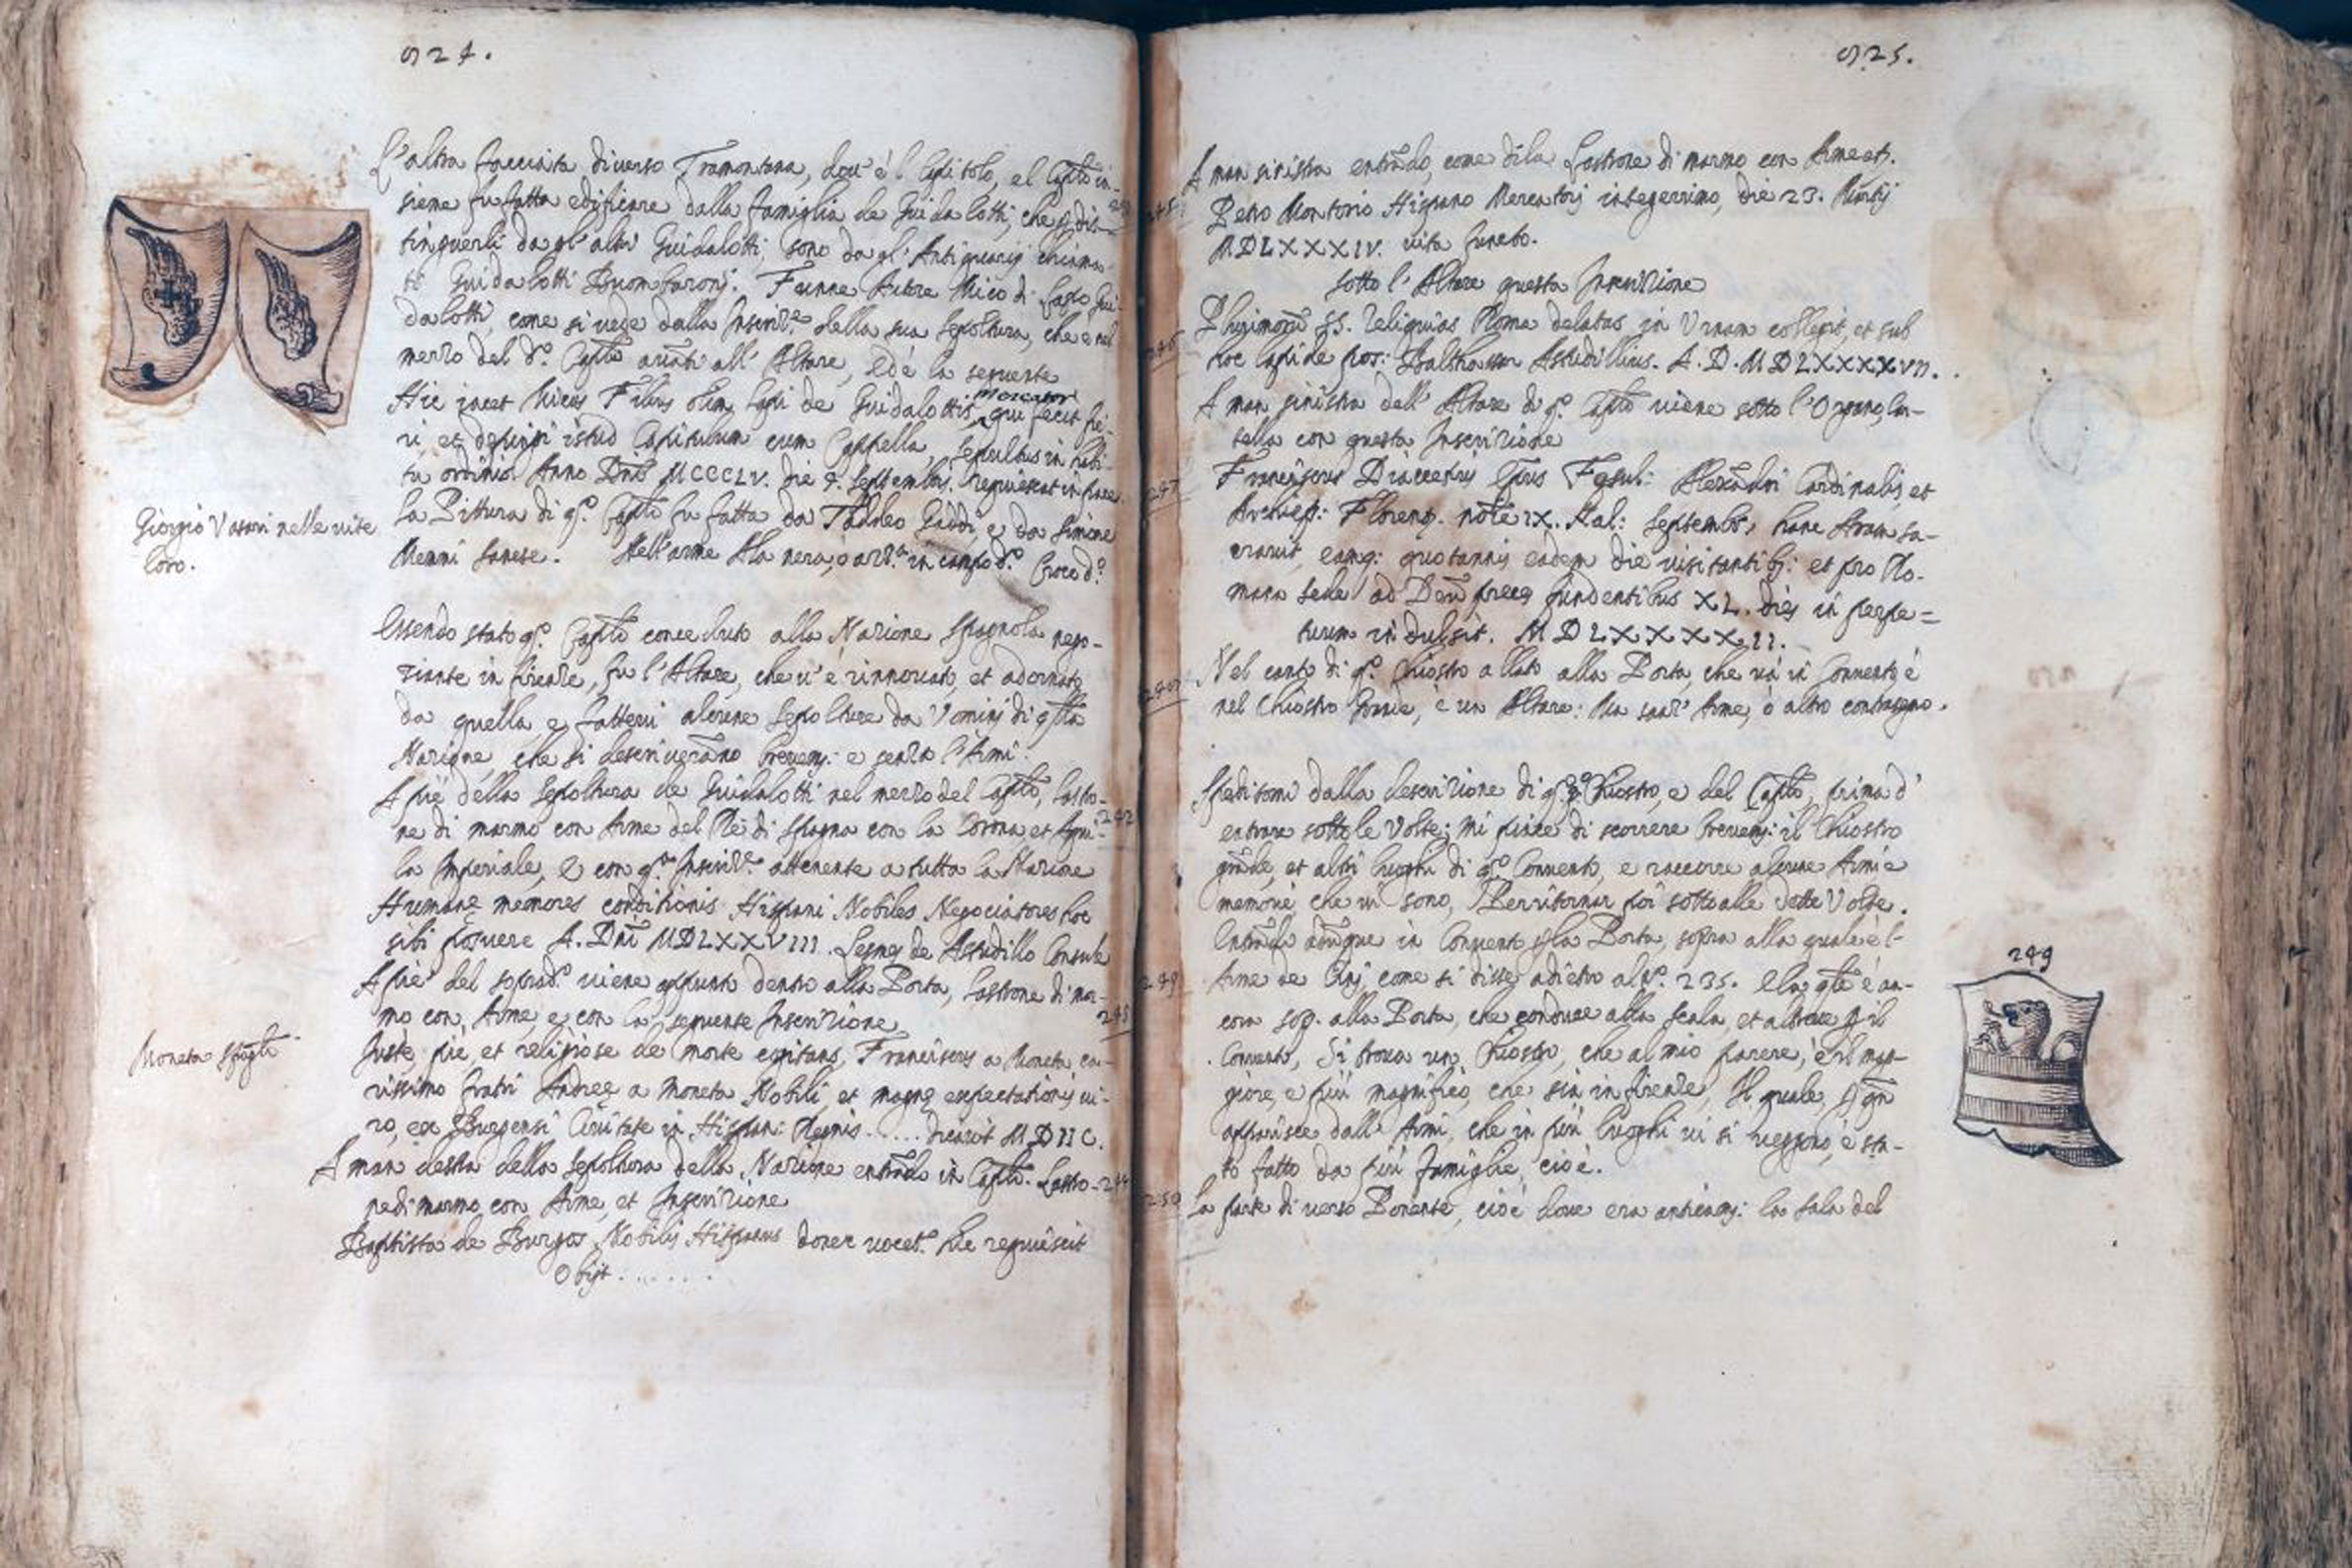 924.
L'altra facciata di verso Tramontana, dov' è 'l Capitolo, el Caplo in-
sieme fu fatta edificare dalla famiglia de Guidalotti, che p dis-
tinguerli da gl' altri Guidalotti, sono da gl' Antiquarij chiama-
ti Guidalotti Buombaronj. Funne Autore Mico di Lapo Gui-
dalotti, come si vede dalla Inscrize. della sua sepoltura, che è nel
mezzo del do. Caplo avanti all' Altare, Ed è la seguente
Hic iacet Micus Filius olim Lapi de Guidalottis, mercator qui fecit fie-
ri, et depingi istud Capitulum cum Cappella, sepultus in habi-
tu ordinis Anno Dni MCCCLV. die 4. septembris. requiescat in pace
La Pittura di qo. Caplo fu fatta da Taddeo Gaddi, e da Simone
Memmi sanese. Nell' arme Ala nera, in campo Croce
Giorgio Vasari nelle vite
loro.
Essendo stato qo. Caplo conceduto alla Nazione Spagnola nego-
ziante in firenze, fu l' Altare, che v' è rinnovato, et adornato
da quella, e fattevi alcune sepolture da Vominj di qlla
Nazione, che si descriverano brevem: e senza l' Armi.
A piè della sepoltura de Guidalotti nel mezzo del Caplo, lastro-
ne di marmo con Arme del Rè di Spagna con la Corona, et Aqui- 242
la Imperiale, E con qa. Inscrize. attenente a tutta la Nazione
Humanę memores conditionis Hispani Nobiles Negociatores hoc
sibi posuere A. Dni MDLXXVIII. Lesmes de Astudillo Consule
A piè del soprado. viene appunto dentro alla Porta, lastrone di mar-
mo con Arme, e con la seguente Inscrizione 243
Moneta Spagli
Juste, pie, et religiose de morte cogitans, Franciscus a Moneta ca-
rissimo fratri Andreę a Moneta Nobili, et magnę expectationis vi-
ro, ex Burgensi Civitate in Hispan: Regnis ..... dicavit MDIIC.
A man destra della sepoltura della Nazione entrado in Caplo. Lastro- 244
ne di marmo con Arme, et Inscrizione
Baptista de Burgos Nobilis Hispanus donec vocet. hic requiescit
Obijt .......
925.
A man sinistra entrado, come di la Lastrone di marmo con Arme et.
245 Petro Montorio Hispano Mercatorj integerrimo, die 23. Martij
MDLXXXIV. vita functo.
sotto l' Altare questa Inscrizione
Plurimorũ SS. Reliquias Roma delatas in Vnam collegit, et sub
246 hoc lapide pos: Balthassar Astudillius. A. D. MDLXXXXVII.
A man sinistra dell' Altare di qo. Caplo viene sotto l' Organo, Car-
tella con questa Inscrizione
247 Franciscus Diaccetus Epus Fesul: Alexãdri Cardinalis, et
Archiep: Florent. noĩe IX. Kal: septembs, hanc Aram sa-
cravit, eamq: quotannis eadem die visitantib: et pro Ro-
mana sede ad Deũ preces fundentibus XL. dies in perpe=
tuum indulsit. MDLXXXXII.
248 Nel canto di qo. Chiostro allato alla Porta, che và in Convento, è
nel Chiostro grande, è un Altare: Ma senz' Arme, o altro contrasegno.
Speditomi dalla descrizione di qo. Chiostro, e del Caplo, prima d'
entrare sotto le Volte; mi piace di scorrere brevem: il Chiostro
grãde, et altri luoghi di qo. Convento, e raccorre alcune Armi e
memorie, che vi sono, P ritornar poi sotto alle dette Volte.
Entrãdo adũque in Convento p la Porta, sopra alla quale è l'
249 Arme de Cinj, come si disse adietro al No. 235. E la qle è an-
cora sop. alla Porta, che conduce alla scala, et altrove p il
Convento, Si trova un Chiostro, che al mio parere, è il mag-
giore, e più magnifico, che sia in firenze, Il quale, p qn
apparisce dalle Armi, che in più luoghi vi si veggono, è sta-
to fatto da più famiglie, cioè.
250 La parte di verso Ponente, cioè dove era anticam: la sala del
249